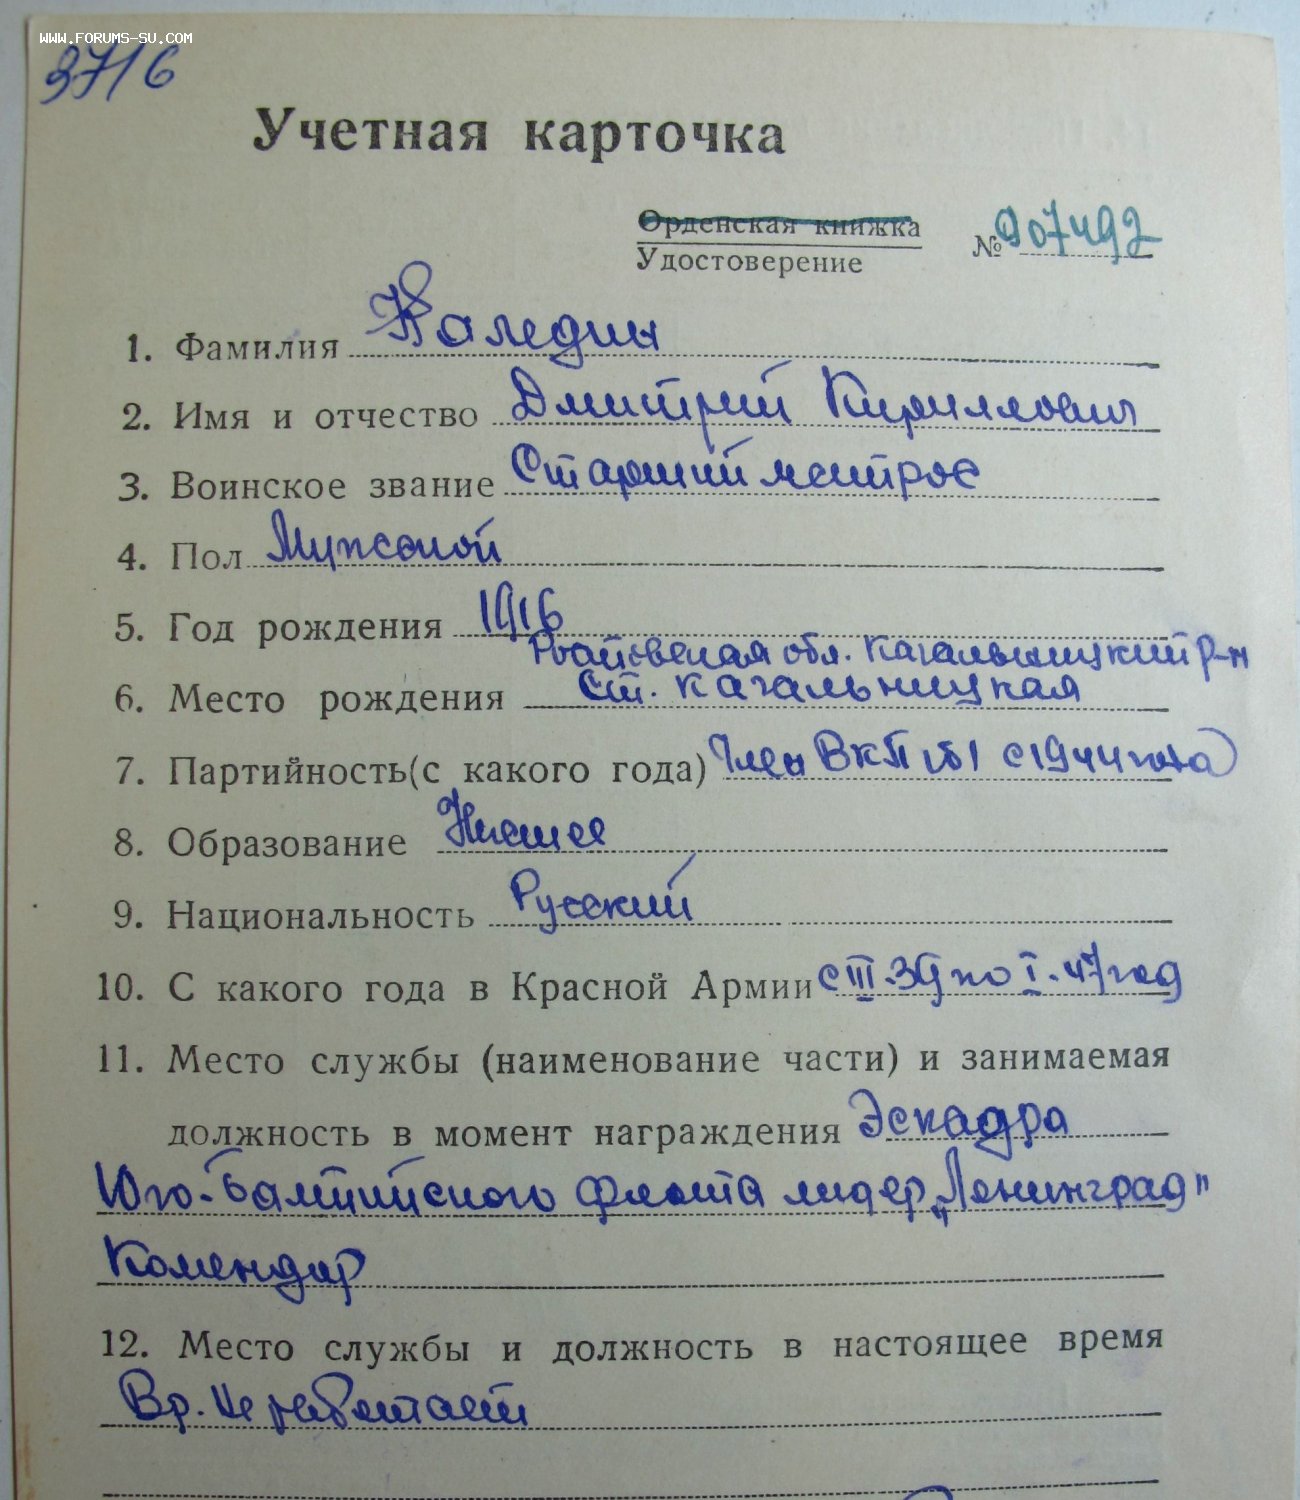 WWW.FORUMS-SU.COM
37/6
Учетная карточка
Орденская книжка
Удостоверение
№ 907492
1. Фамилия Каледин
2. Имя и отчество Дмитрий Кириллович
3. Воинское звание Старший матрос
4. Пол Мужской
5. Год рождения 1916
Ростовская обл. Кагальницкий р-н
6. Место рождения ст. Кагальницкая
7. Партийность(с какого года) Член ВКП(б) с 1944 года)
8. Образование Низшее
9. Национальность Русский
10. С какого года в Красной Армии с III.39 по I.47 год
11. Место службы (наименование части) и занимаемая
должность в момент награждения Эскадра
Юго-Балтийского флота лидер „Ленинград"
Комендор
12. Место службы и должность в настоящее время
Вр. не работает